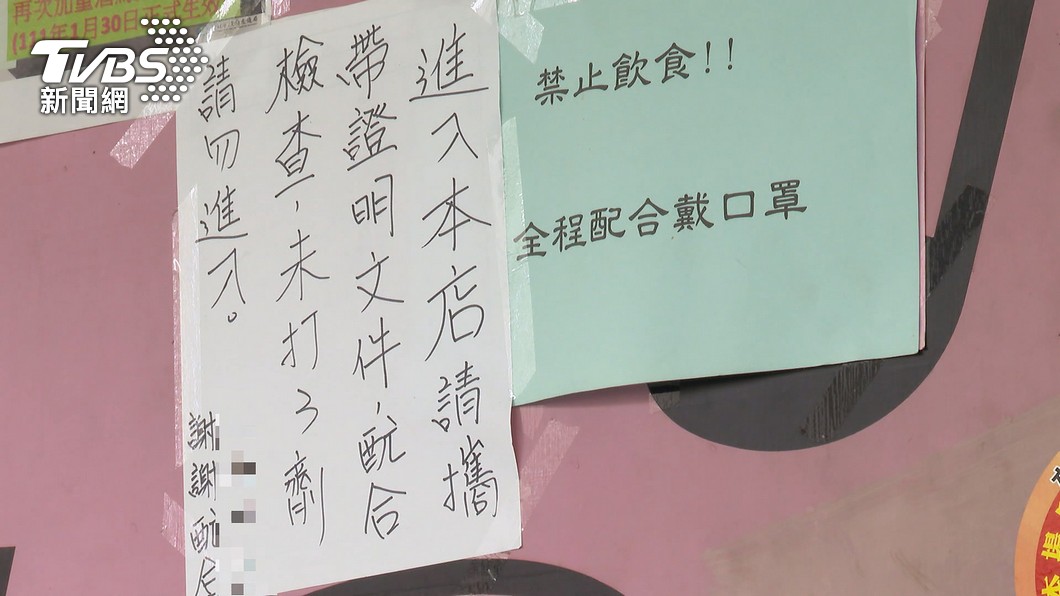 TVBS
新聞網
(111年1月30日正式生效
進入本店請攜
帶證明文件，配合
檢查，未打3劑
請勿進入。
謝謝配合
禁止飲食!!
全程配合戴口罩